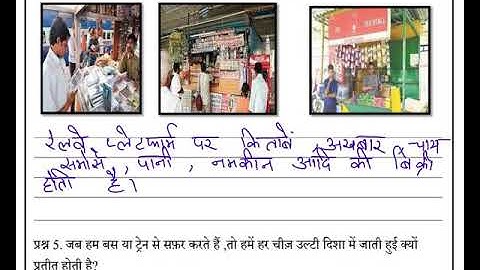 रेलवे प्लेटफार्म पर किताबें, अखबार, चाय
समोसे, पानी, नमकीन आदि की बिक्री
होती है।
प्रश्न 5. जब हम बस या ट्रेन से सफ़र करते हैं ,तो हमें हर चीज़ उल्टी दिशा में जाती हुई क्यों
प्रतीत होती है?